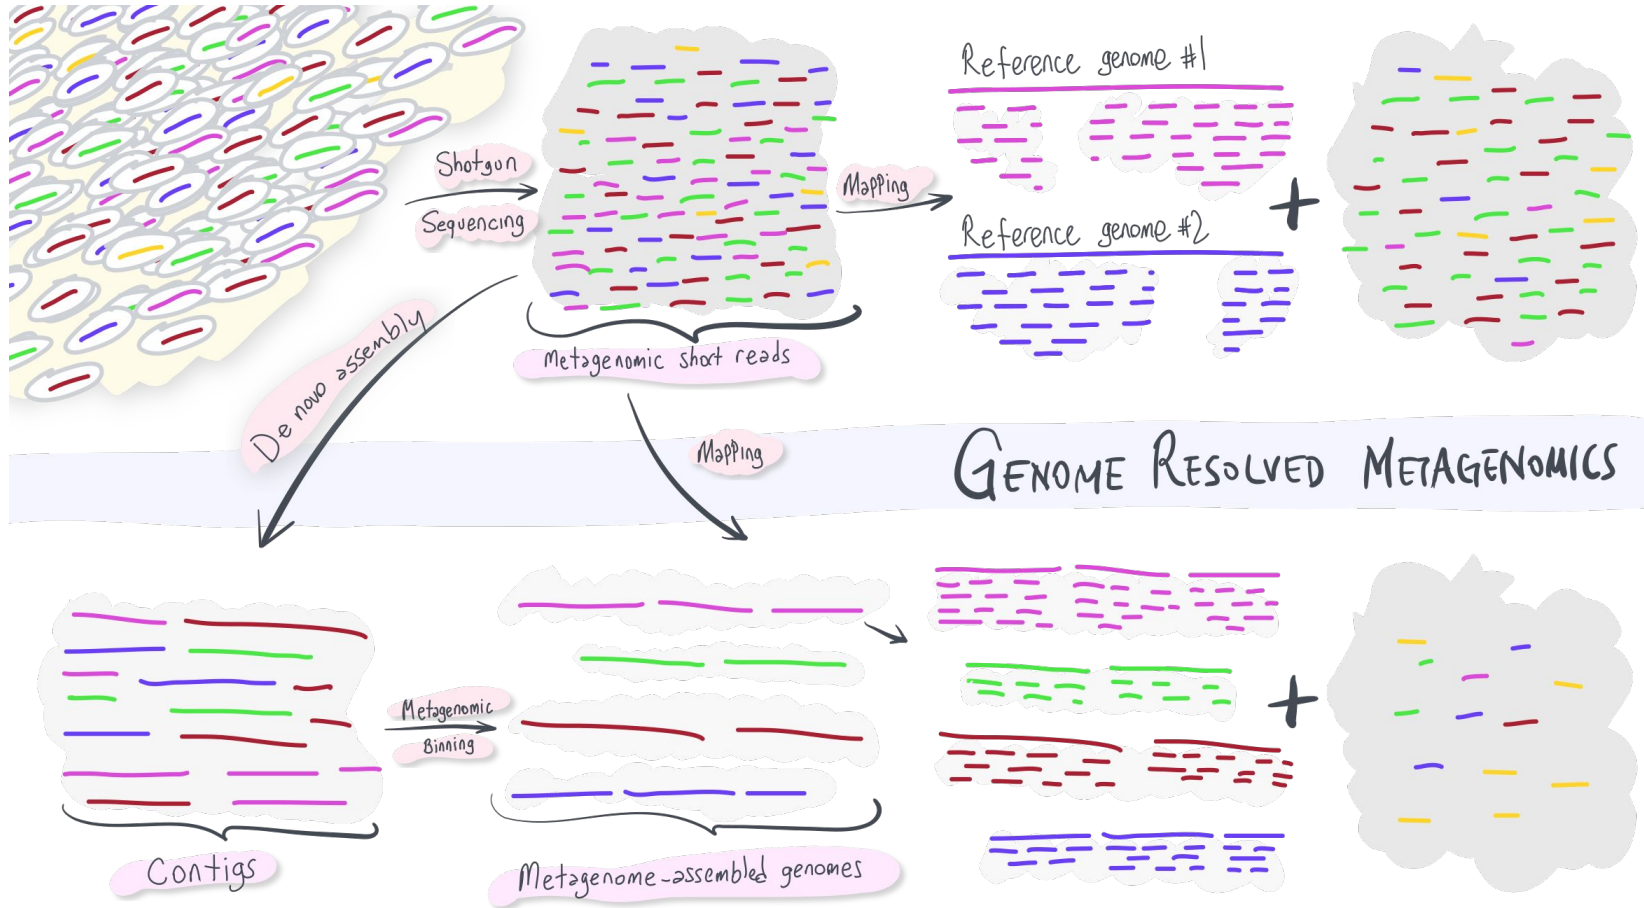 Reference genome #1
Shotgun
Sequencing
Mapping
Reference genome #2
Metagenomic short reads
De novo assembly
Mapping
GENOME RESOLVED METAGENOMICS
Metagenomic
Binning
Contigs
Metagenome-assembled genomes